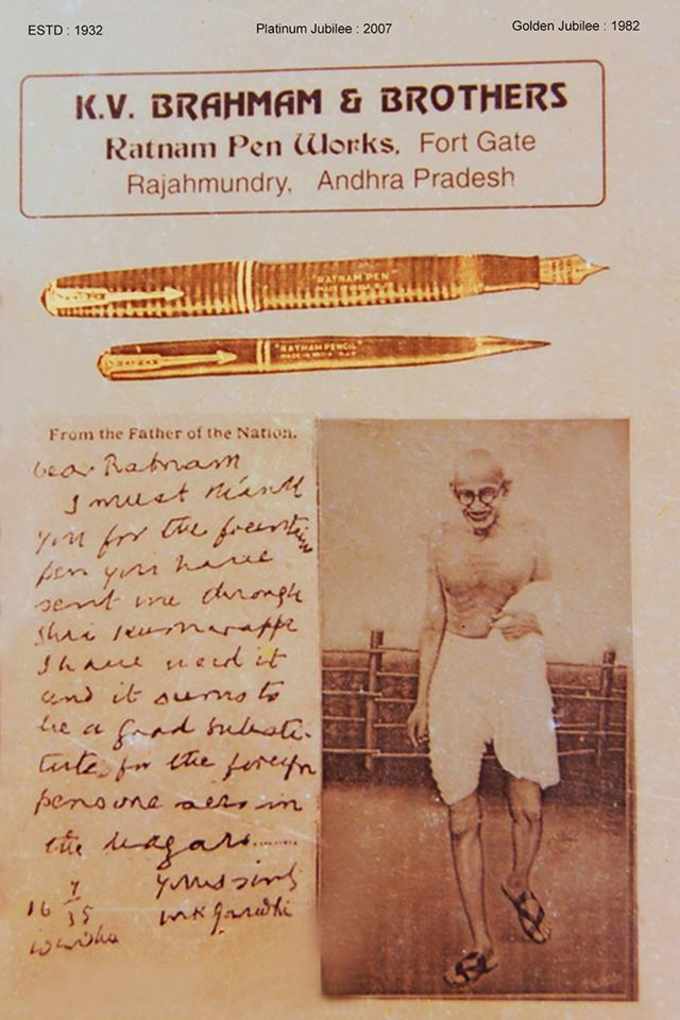 ESTD : 1932 Platinum Jubilee : 2007 Golden Jubilee : 1982
K.V. BRAHMAM & BROTHERS
Ratnam Pen Works, Fort Gate
Rajahmundry, Andhra Pradesh
"RATNAM PEN"
"RATNAM PENCIL"
MADE IN INDIA
From the Father of the Nation.
Dear Ratnam
I must thank
you for the fountain
pen you have
sent me through
Shri Kumarappa
I have used it
and it seems to
be a good substi-
tute for the foreign
pens one sees in
the bazars.........
yours sincly
16 7 35 MK Gandhi
Wardha